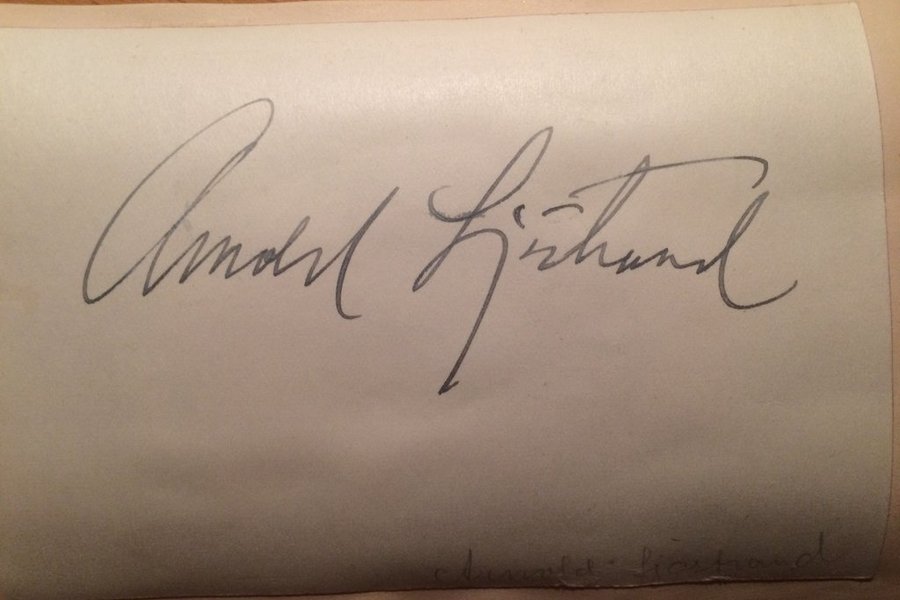 Arnold Sjöstrand
Arnold Sjöstrand